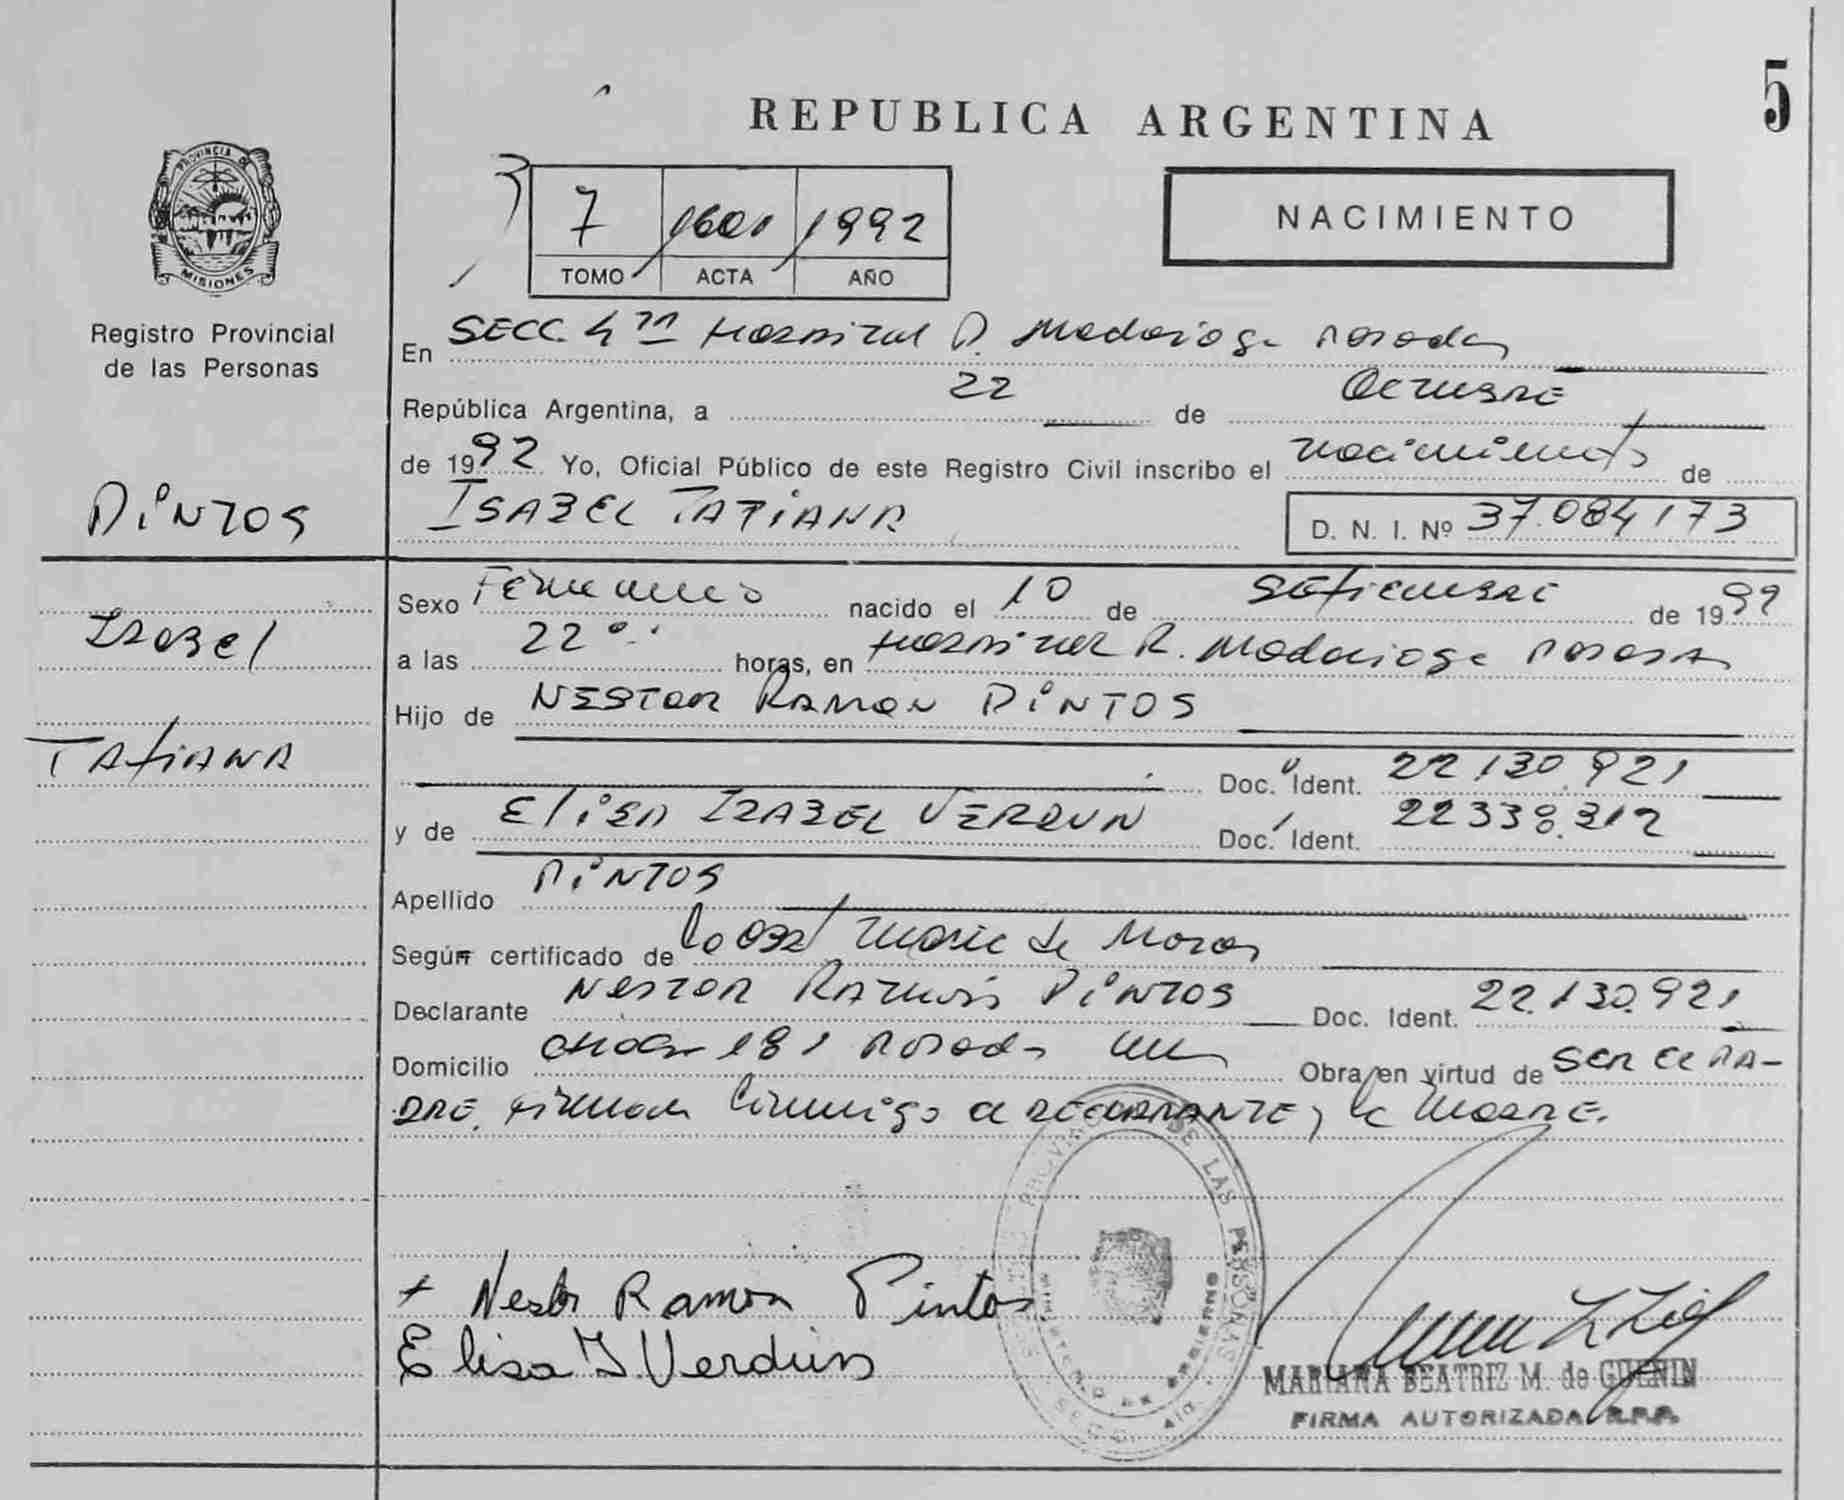 REPUBLICA ARGENTINA
5
PROVINCIA DE
MISIONES
Registro Provincial
de las Personas
7 1601 1992
TOMO ACTA AÑO
NACIMIENTO
En SECC. 4ta Hospital R. Madariaga Posadas
República Argentina, a 22 de Octubre
de 1992 Yo, Oficial Público de este Registro Civil inscribo el nacimiento de
PINTOS
ISABEL TATIANA D. N. I. Nº 37.084173
Sexo Femenino nacido el 10 de Setiembre de 1992
Isabel
a las 22 horas, en Hospital R. Madariaga Posadas
Hijo de NESTOR RAMON PINTOS
TATIANA
Doc. Ident. 22130.921
y de Elisa ISABEL VERDUN Doc. Ident. 22338.312
Apellido PINTOS
Según certificado de la Obst Marie de
Declarante Nestor Ramón Pintos Doc. Ident. 22.130.921
Domicilio 181 Posadas Obra en virtud de Ser el PA-
DRE. Firman conmigo el DECLARANTE y la Madre.
+ Nestor Ramon Pintos
Elisa I. Verdún
DE LAS PERSONAS
MINISTERIO DE GOBIERNO
MARIANA BEATRIZ M. de GUENIN
FIRMA AUTORIZADA R.P.P.